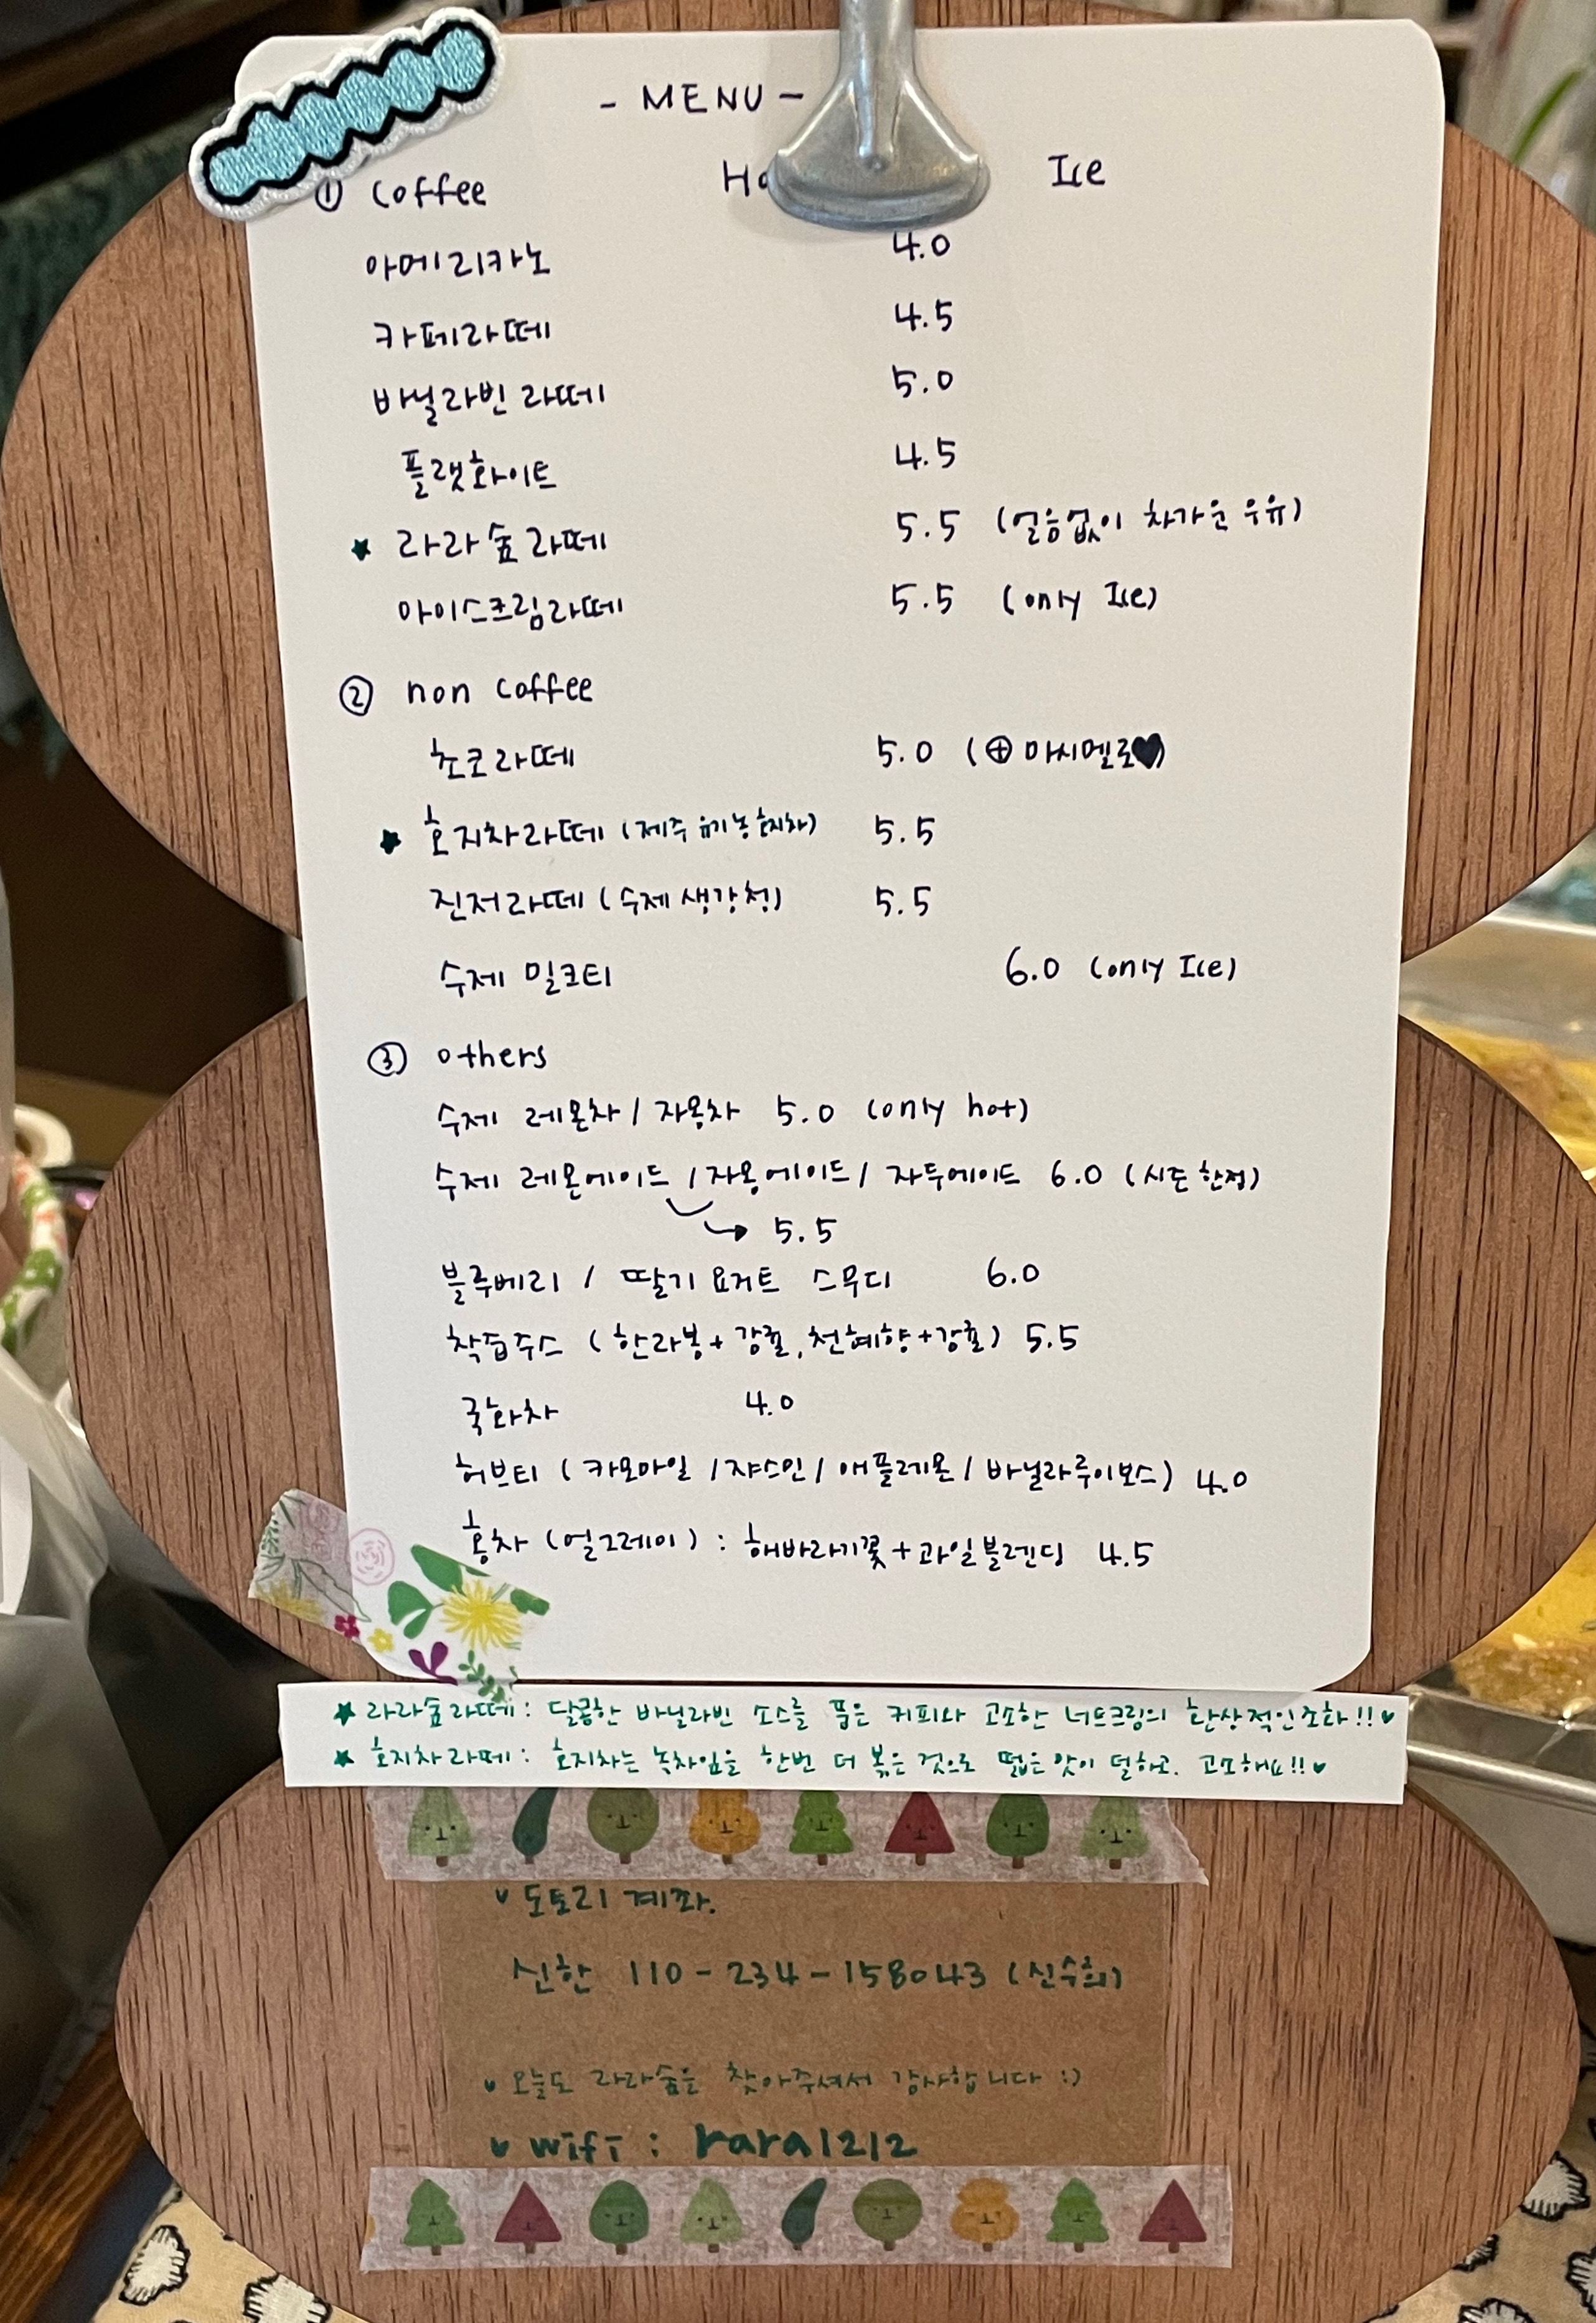 - MENU -
① Coffee Ice
아메리카노 4.0
카페라떼 4.5
바닐라빈 라떼 5.0
플랫화이트 4.5
★ 라라숲 라떼 5.5 (얼음없이 차가운 우유)
아이스크림라떼 5.5 (only Ice)
② non coffee
초코라떼 5.0 (⊕ 마시멜로♥)
★ 호지차라떼 (제주 유기농 호지차) 5.5
진저라떼 (수제 생강청) 5.5
수제 밀크티 6.0 (only Ice)
③ others
수제 레몬차 / 자몽차 5.0 (only hot)
수제 레몬에이드 / 자몽에이드 / 자두에이드 6.0 (시즌 한정)
→ 5.5
블루베리 / 딸기 요거트 스무디 6.0
착즙주스 (한라봉+감귤, 천혜향+감귤) 5.5
국화차 4.0
허브티 (카모마일 / 쟈스민 / 애플레몬 / 바닐라루이보스) 4.0
홍차 (얼그레이) : 해바라기꽃 + 과일블렌딩 4.5
★ 라라숲라떼 : 달콤한 바닐라빈 소스를 품은 커피와 고소한 너트크림의 환상적인조화!! ♥
★ 호지차라떼 : 호지차는 녹차잎을 한번 더 볶은 것으로 떫은 맛이 덜하고. 고소해요!! ♥
♥ 도토리 계좌.
신한 110-234-158043 (신수희)
♥ 오늘도 라라숲을 찾아주셔서 감사합니다 :)
♥ wifi : rara1212